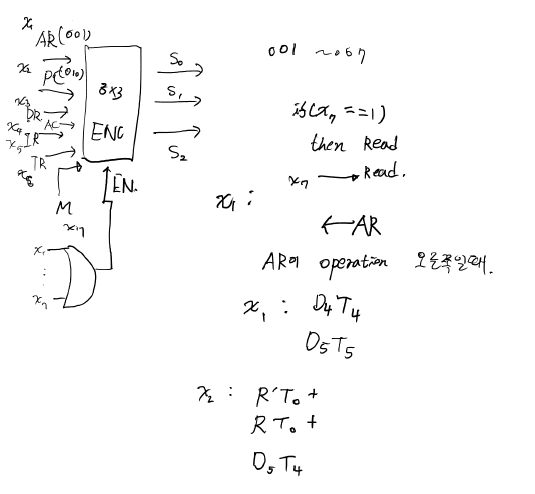 x₁
AR(001)
x₂ PC(010)
x₃
DR
x₄ AC
x₅ IR
TR
x₆
M
x₇
8x3
ENC
S₀
S₁
S₂
EN.
x₁
⋮
x₇
001 ~067
if(x₇ ==1)
then Read
x₇ → Read.
x₁ :
← AR
AR이 operation 오른쪽일때.
x₁ : D₄T₄
D₅T₅
x₂ : R'T₀ +
RT₀ +
D₅T₄